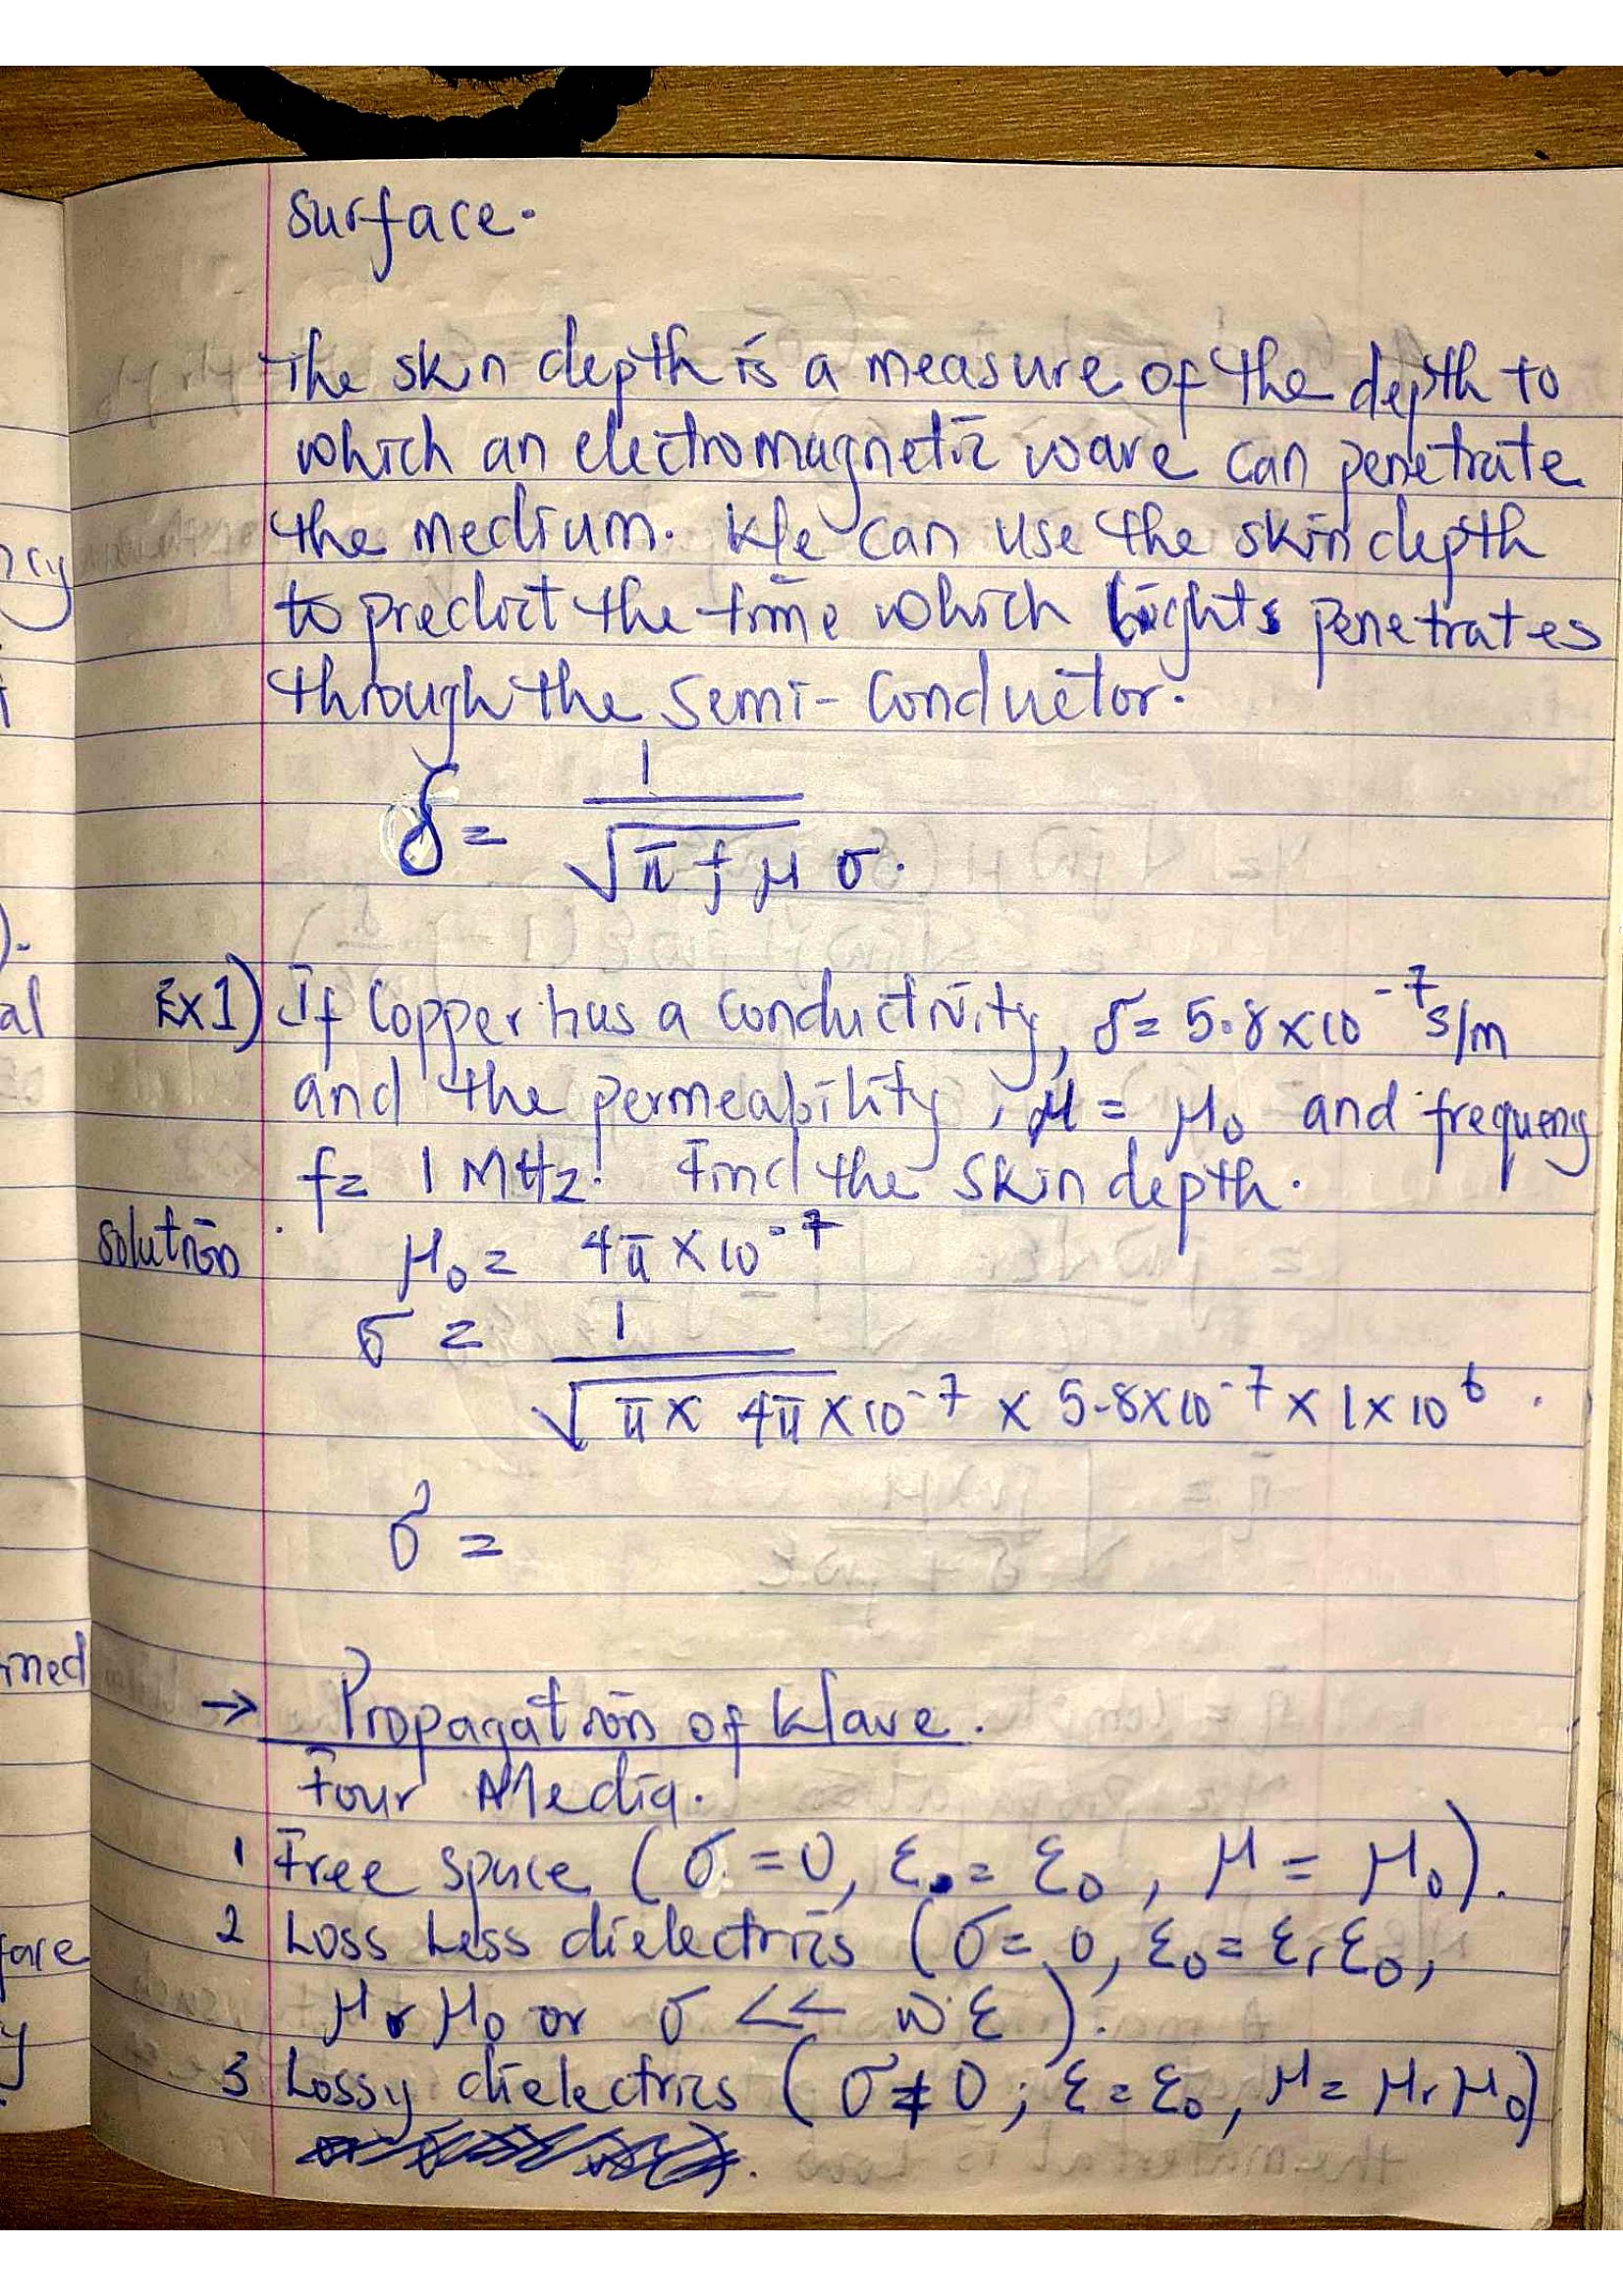 surface.
The skin depth is a measure of the depth to
which an electromagnetic wave can penetrate
the medium. We can use the skin depth
to predict the time which lights penetrates
through the semi-conductor.
δ = 1 / √π f μ σ.
Ex1) If Copper has a conductivity, δ = 5.8 × 10⁻⁷ s/m
and the permeability, μ = μ₀ and frequency
f = 1 MHz. Find the skin depth.
solution
μ₀ = 4π × 10⁻⁷
σ = 1 / √π × 4π × 10⁻⁷ × 5.8 × 10⁻⁷ × 1 × 10⁶.
δ =
→ Propagation of Wave.
Four Media.
1 Free space (σ = 0, ε₀ = ε₀, μ = μ₀).
2 Loss Less dielectrics (σ = 0, ε₀ = εᵣ ε₀,
μᵣ μ₀ or σ << ωε).
3 Lossy dielectrics (σ ≠ 0; ε = ε₀, μ = μᵣ μ₀)
ncy
).
al
ined
face
y